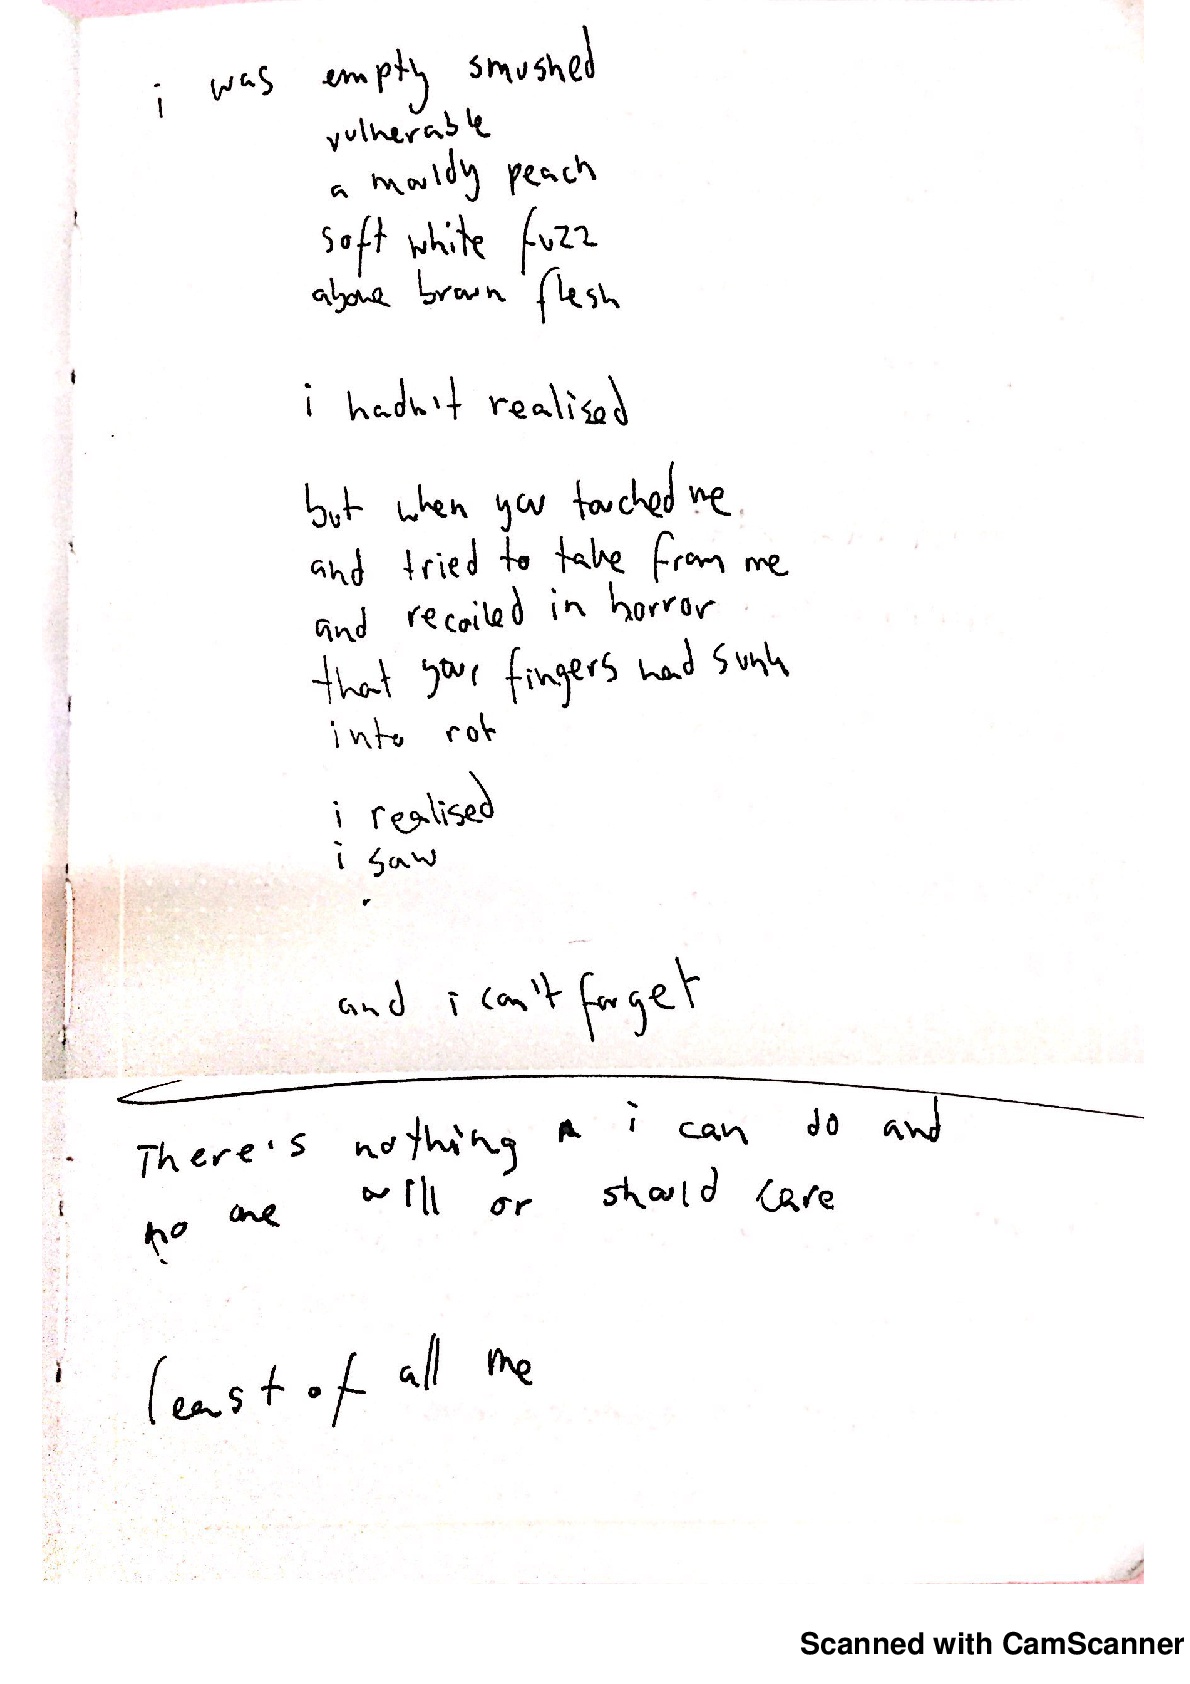 i was empty smushed
vulnerable
a mouldy peach
soft white fuzz
above brown flesh
i hadn't realised
but when you touched me
and tried to take from me
and recoiled in horror
that your fingers had sunk
into rot
i realised
i saw
and i can't forget
There's nothing i can do and
no one will or should care
least of all me
Scanned with CamScanner